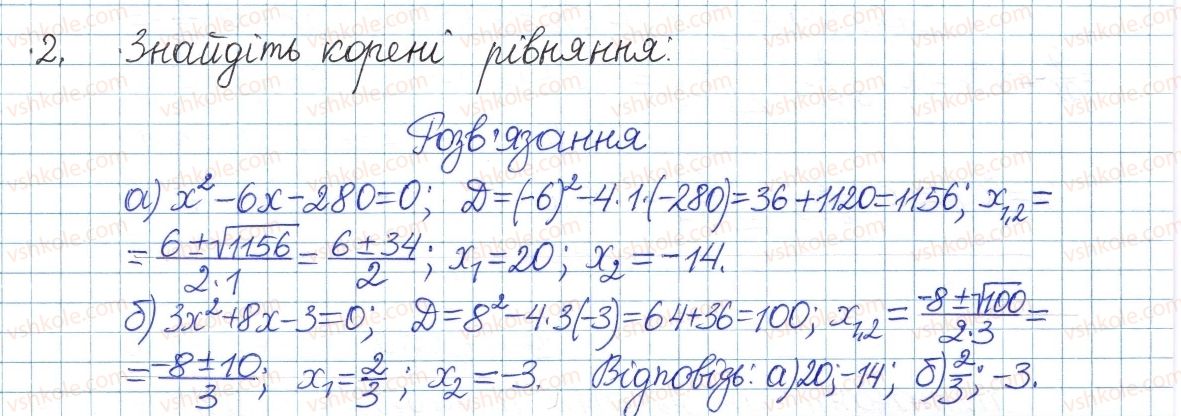 2. Знайдіть корені рівняння:
Розв'язання
а) x² - 6x - 280 = 0; Д = (-6)² - 4·1·(-280) = 36 + 1120 = 1156; x₁,₂ =
= (6 ± √1156)/(2·1) = (6 ± 34)/2; x₁ = 20; x₂ = -14.
б) 3x² + 8x - 3 = 0; Д = 8² - 4·3(-3) = 64 + 36 = 100; x₁,₂ = (-8 ± √100)/(2·3) =
= (-8 ± 10)/3; x₁ = 2/3; x₂ = -3. Відповідь: а) 20; -14; б) 2/3; -3.